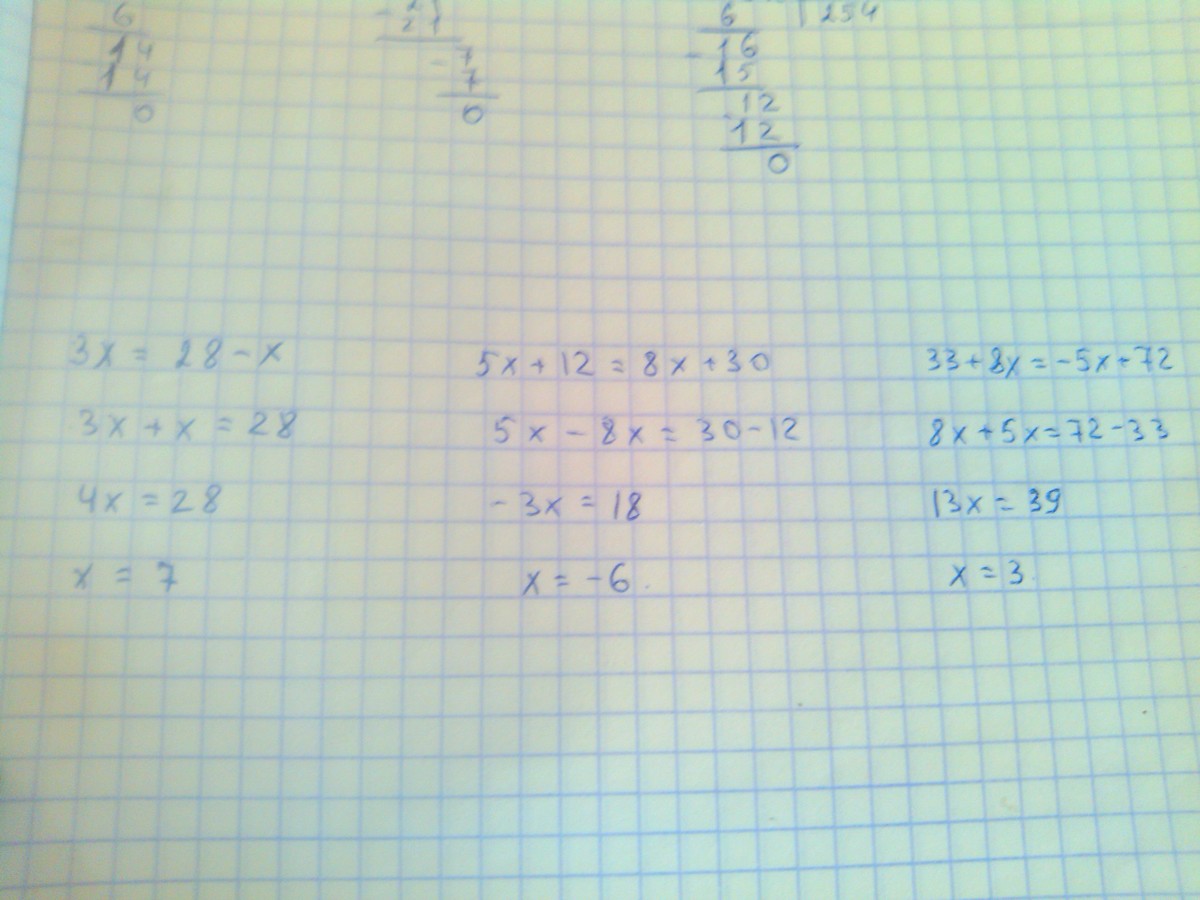 6
14
14
0
- 21
- 7
7
0
6 254
- 16
15
12
12
0
3x = 28 - x
3x + x = 28
4x = 28
x = 7
5x + 12 = 8x + 30
5x - 8x = 30 - 12
- 3x = 18
x = -6.
33 + 8x = -5x + 72
8x + 5x = 72 - 33
13x = 39
x = 3.